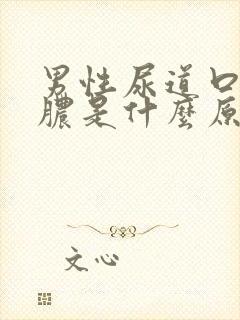 男性尿道口
膿是什麼原
文心